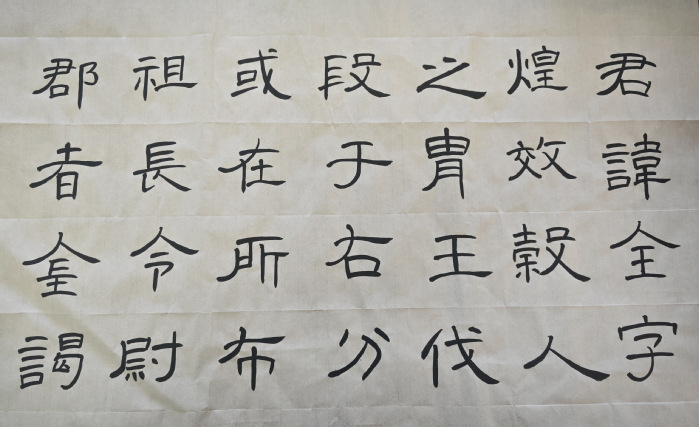 君諱全字
煌效穀人
之胄王伐
段于右分
或在所布
祖長令尉
郡者謁